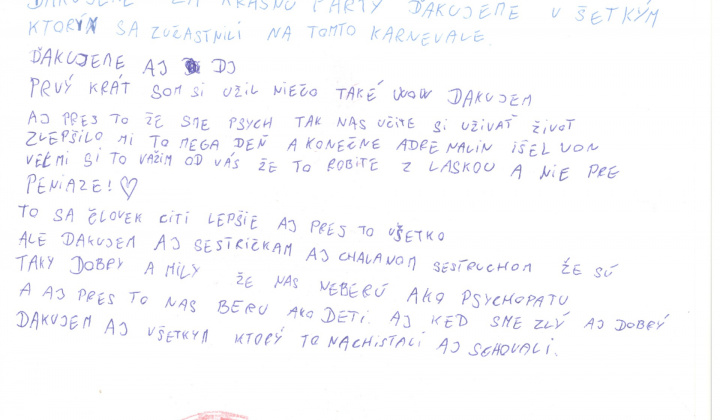 ĎAKUJEME ZA KRÁSNU PÁRTY ĎAKUJEME VŠETKÝM
KTORÝ SA ZÚČASTNILI NA TOMTO KARNEVALE.
ĎAKUJEME AJ DJ
PRVÝ KRÁT SOM SI UŽIL NIEČO TAKÉ WOW ĎAKUJEM
AJ PRES TO ŽE SME PSYCH TAK NAS UČITE SI UŽIVAŤ ŽIVOT
ZLEPŠILO MI TO MEGA DEŇ A KONEČNE ADRENALIN IŠEL VON
VEĽMI SI TO VAŽIM OD VÁS ŽE TO ROBITE Z LASKOU A NIE PRE
PENIAZE! ♡
TO SA ČLOVEK CITI LEPŠIE AJ PRES TO VŠETKO
ALE ĎAKUJEM AJ SESTRIČKAM AJ CHALANOM SESTRUCHOM ŽE SÚ
TAKY DOBRY A MILY ŽE NAS NEBERÚ AKO PSYCHOPATU
A AJ PRES TO NAS BERU AKO DETI. AJ KED SME ZLÝ AJ DOBRÝ
ĎAKUJEM AJ VŠETKYM KTORÝ TO NACHISTALI AJ SCHOVALI.